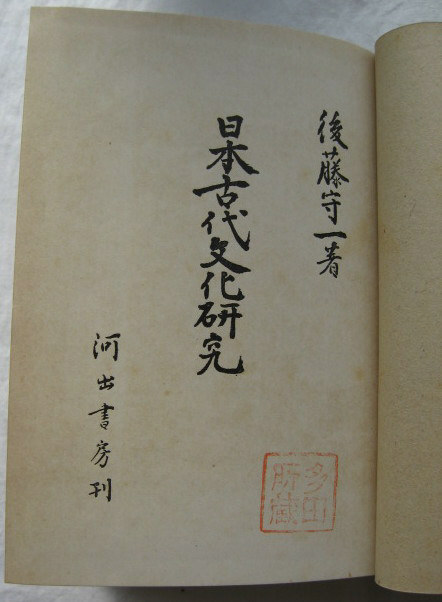 後藤守一著
日本古代文化研究
河出書房刊
多田
所蔵